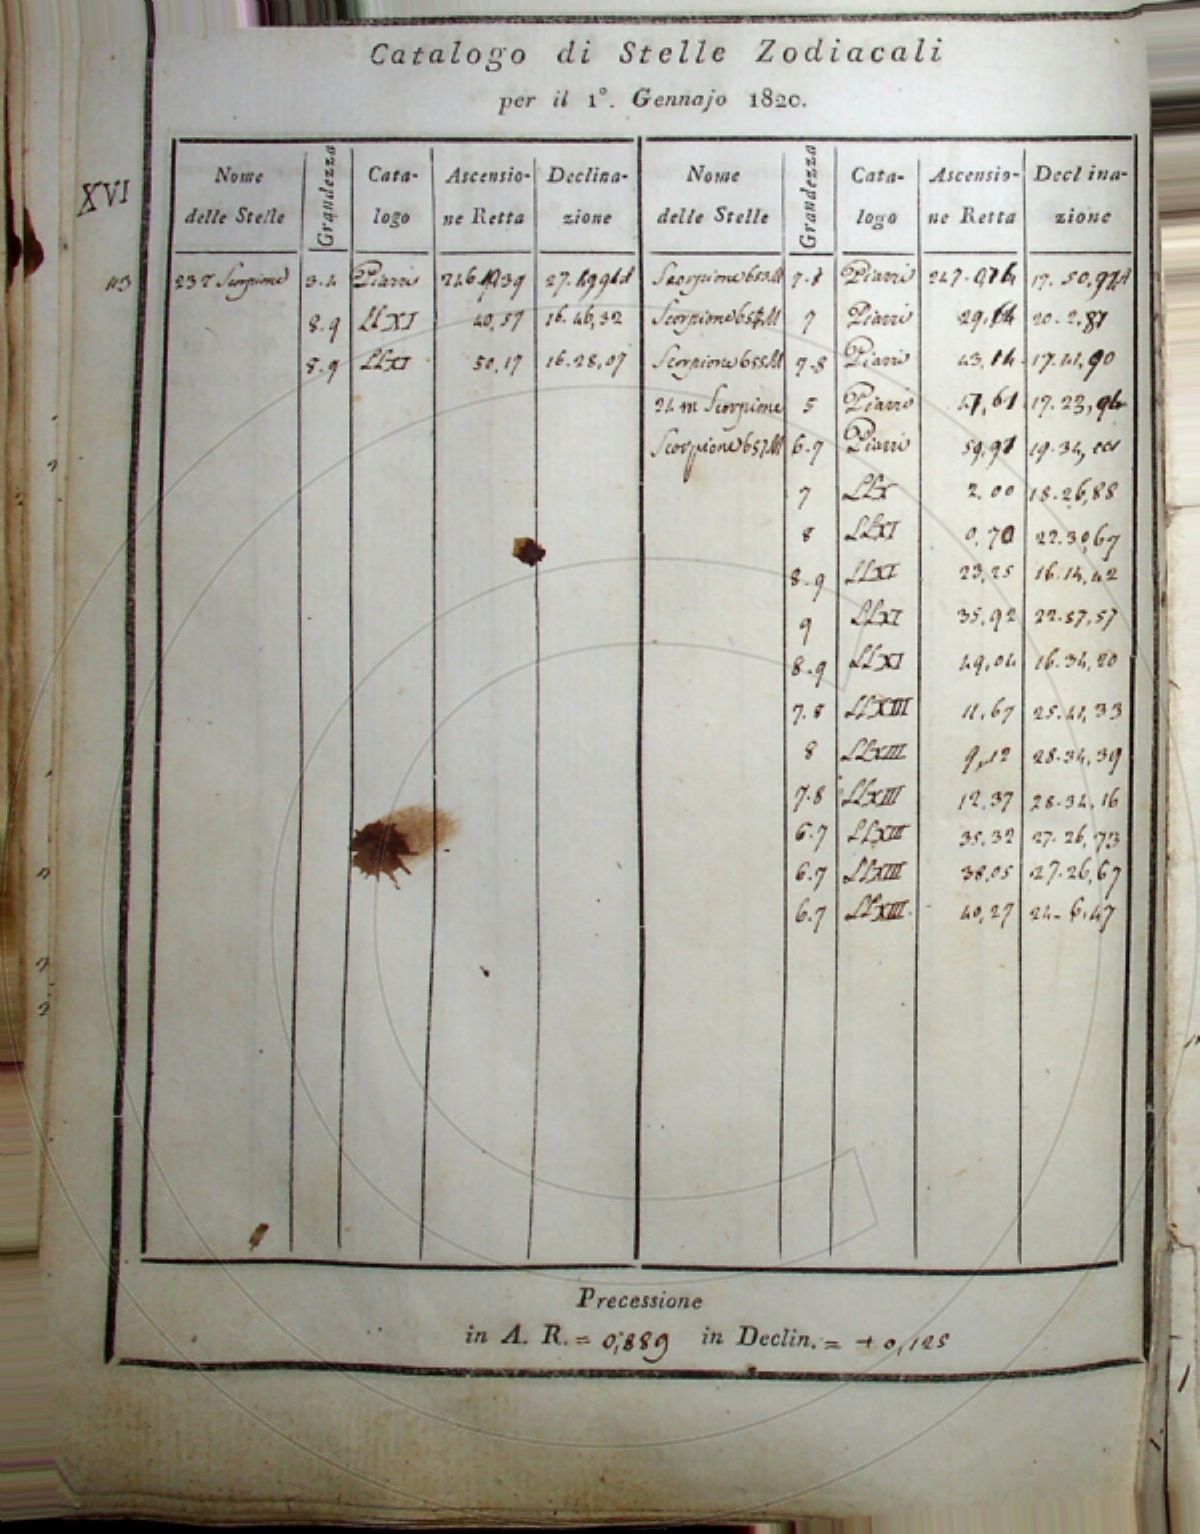 Catalogo di Stelle Zodiacali
per il 1°. Gennajo 1820.
XVI
Nome delle Stelle Grandezza Cata-logo Ascensio-ne Retta Declina-zione Nome delle Stelle Grandezza Cata-logo Ascensio-ne Retta Declina-zione
23 τ Scorpione 3.4 Piazzi 27. Scorpione 653.M 7.8 Piazzi 17. 50,
8.9 LLXI 40,57 16.46,32 Scorpione 654.M 7 Piazzi 20. 2,87
8.9 LLXI 50,17 16.28,07 Scorpione 655.M 7.8 Piazzi 43,14 17.41,90
24 m Scorpione 5 Piazzi 47,61 17. 23,
Scorpione 657.M 6.7 Piazzi 59,97 19.34,
7 LLX 2,00 18.26,88
8 LLXI 0,70 22.30,67
8.9 LLXI 23,25 16.14,42
9 LLXI 35,92 22.57,57
8.9 LLXI 49,04 16.34,20
7.8 LLXIII 11,67 25.41,33
8 LLXIII 9,12 28.34,39
7.8 LLXIII 12,37 28.34,16
6.7 LLXIII 35,32 27.26,73
6.7 LLXIII 38,05 27.26,67
6.7 LLXIII 40,27 24. 6,47
Precessione
in A. R. = 0,889 in Declin. = + 0,125